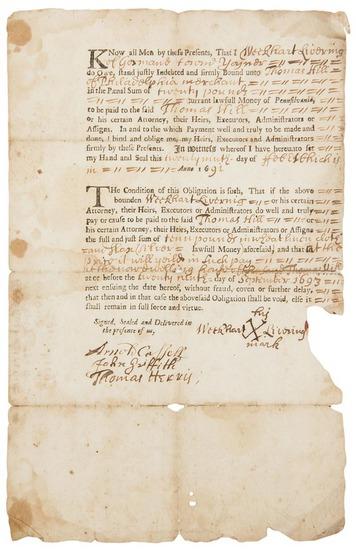 KNow all Men by these Presents, That I Weckhart Livering
of Germans town Yoyner
do Owe, stand justly Indebted and firmly Bound unto Thomas Hill
of Philadelphia merchant
in the Penal Sum of twenty pounds
currant lawfull Money of Pennsilvania
to be paid to the said Thomas Hill
or his certain Attorney, their Heirs, Executors, Administrators or
Assigns. In and to the which Payment well and truly to be made and
done, I bind and oblige me, my Heirs, Executors and Administrators
firmly by these Presents. In Witness whereof I have hereunto set
my Hand and Seal this twenty day of which is
in Anno 1692
THe Condition of this Obligation is such, That if the above
bounden Weckhart Livering or his certain
Attorney, their Heirs, Executors or Administrators do well and truly
pay or cause to be paid to the said Thomas Hill
his certain Attorney, their Heirs, Executors, Administrators or Assigns
the full and just sum of ten pounds in wheat linen cloth
lawfull Money aforesaid, and that at the
it will yeald in such pay
at the now dwelling house of Thomas Hill
at or before the twenty ninth day of September 1693
next ensuing the date hereof, without fraud, coven or further delay,
that then and in that case the abovesaid Obligation shall be void, else it
shall remain in full force and virtue.
Signed, Sealed and Delivered in
the presence of us,
his
Weckhart X Livering
mark
Arnold Cassell
John Griffith
Thomas Herris,